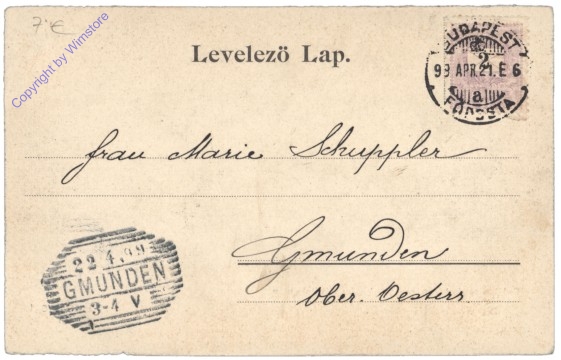 7.€
Copyright by Winstore
Levelező Lap.
BUDAPEST
2
99 APR.21.E 6
a
FŐPOSTA
Frau Marie Schuppler
Gmunden
Ober. Oesterr.
22 4.99
GMUNDEN
3-4 V